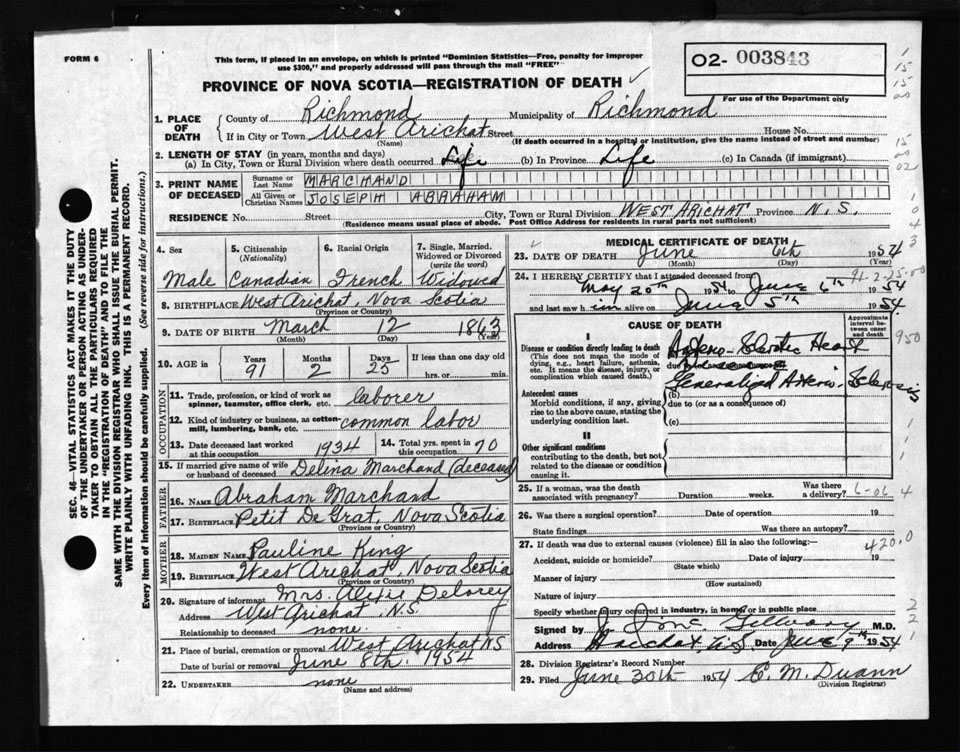 FORM 6
This form, if placed in an envelope, on which is printed "Dominion Statistics—Free, penalty for improper
use $300," and properly addressed will pass through the mail "FREE"
O2- 003843
PROVINCE OF NOVA SCOTIA—REGISTRATION OF DEATH
For use of the Department only
1. PLACE OF DEATH
County of Richmond Municipality of Richmond
If in City or Town West Arichat Street House No.
(Name) (If death occurred in a hospital or institution, give the name instead of street and number)
2. LENGTH OF STAY (in years, months and days)
(a) In City, Town or Rural Division where death occurred Life (b) In Province Life (c) In Canada (if immigrant)
3. PRINT NAME OF DECEASED
Surname or Last Name MARCHAND
All Given or Christian Names JOSEPH ABRAHAM
RESIDENCE No. Street City, Town or Rural Division WEST ARICHAT Province N.S.
(Residence means usual place of abode. Post Office Address for residents in rural parts not sufficient)
4. Sex 5. Citizenship (Nationality) 6. Racial Origin 7. Single, Married, Widowed or Divorced (write the word)
Male Canadian French Widowed
8. BIRTHPLACE West Arichat, Nova Scotia
(Province or Country)
9. DATE OF BIRTH March 12 1863
(Month) (Day) (Year)
10. AGE in Years Months Days If less than one day old
91 2 25 hrs. or min.
OCCUPATION
11. Trade, profession, or kind of work as spinner, teamster, office clerk, etc. laborer
12. Kind of industry or business, as cotton-mill, lumbering, bank, etc. common labor
13. Date deceased last worked at this occupation 1934 14. Total yrs. spent in this occupation 70
15. If married give name of wife or husband of deceased Delina Marchand (deceased)
FATHER
16. NAME Abraham Marchand
17. BIRTHPLACE Petit De Grat, Nova Scotia
(Province or Country)
MOTHER
18. MAIDEN NAME Pauline King
19. BIRTHPLACE West Arichat, Nova Scotia
(Province or Country)
20. Signature of informant Mrs. Alexie Delorey
Address West Arichat N.S.
Relationship to deceased none
21. Place of burial, cremation or removal West Arichat NS
Date of burial or removal June 8th. 1954
22. UNDERTAKER none
(Name and address)
MEDICAL CERTIFICATE OF DEATH
23. DATE OF DEATH June 6th 1954
(Month) (Day)
24. I HEREBY CERTIFY that I attended deceased from 91-2-25-00
May 20th 1954 to June 6th 1954
and last saw him alive on June 5th 1954.
CAUSE OF DEATH
Approximate interval between onset and death
950
Disease or condition directly leading to death
(This does not mean the mode of dying, e.g., heart failure, asthenia, etc. It means the disease, injury, or complication which caused death.)
Arterio-Sclerotic Heart
due
Generalized Arterio-Sclerosis
Antecedent causes
Morbid conditions, if any, giving rise to the above cause, stating the underlying condition last.
due to (or as a consequence of)
(c)
II
Other significant conditions
contributing to the death, but not related to the disease or condition causing it.
25. If a woman, was the death associated with pregnancy? Duration weeks. Was there a delivery? 6-06.4
26. Was there a surgical operation? Date of operation 19
State findings Was there an autopsy?
27. If death was due to external causes (violence) fill in also the following:— 420.0
Accident, suicide or homicide? Date of injury 19
(State which)
Manner of injury
(How sustained)
Nature of injury
Specify whether injury occurred in industry, in home or in public place
Signed by J. J. McGillivary M.D.
Address Arichat, N.S. Date June 9th 1954
28. Division Registrar's Record Number
29. Filed June 30th 1954 C. M. Duann
(Division Registrar)
SEC. 46—VITAL STATISTICS ACT MAKES IT THE DUTY
OF THE UNDERTAKER OR PERSON ACTING AS UNDER-
TAKER TO OBTAIN ALL THE PARTICULARS REQUIRED
IN THE "REGISTRATION OF DEATH" AND TO FILE THE
SAME WITH THE DIVISION REGISTRAR WHO SHALL ISSUE THE BURIAL PERMIT.
WRITE PLAINLY WITH UNFADING INK. THIS IS A PERMANENT RECORD.
Every item of information should be carefully supplied. (See reverse side for instructions.)